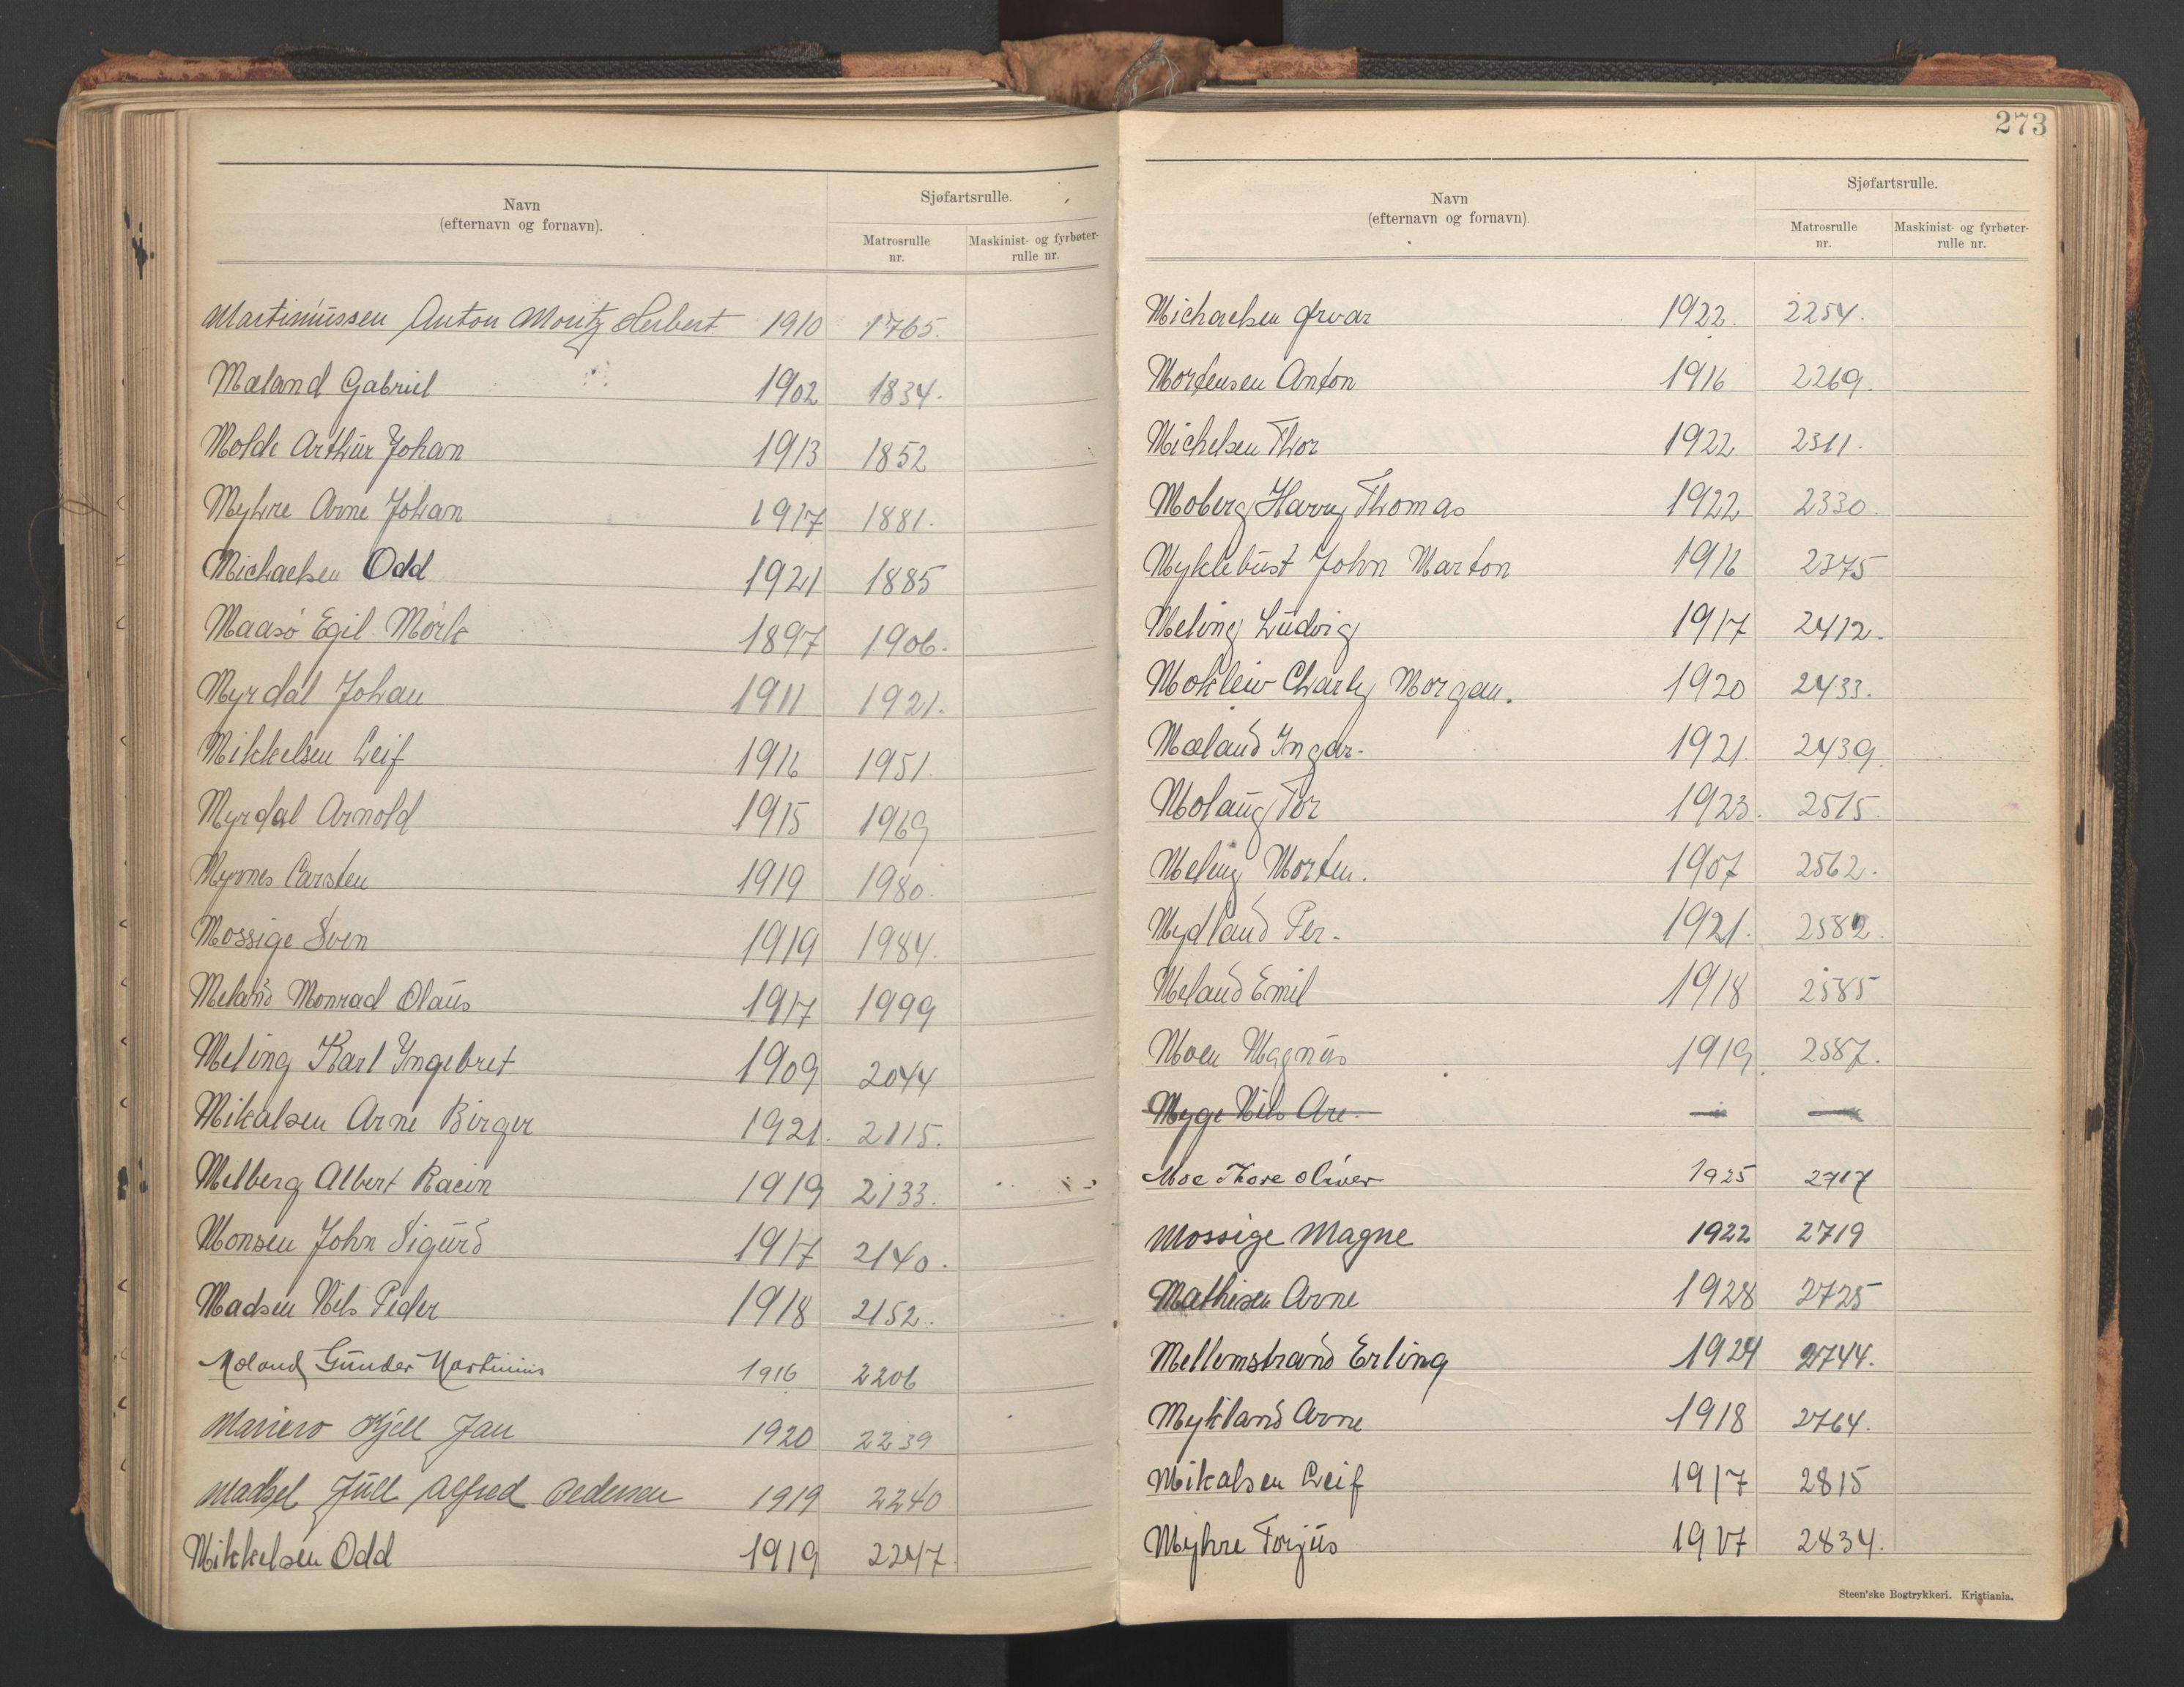 Navn
(efternavn og fornavn).
Sjøfartsrulle.
Matrosrulle
nr.
Maskinist- og fyrbøter-
rulle nr.
Martiniussen Anton Moritz Herbert 1910 1765.
Mæland Gabriel 1902 1834.
Molde Arthur Johan 1913 1852
Myhre Arne Johan 1917 1881.
Michaelsen Odd 1921 1885
Maasø Egil Mørk 1897 1906.
Myrdal Johan 1911 1921.
Mikkelsen Leif 1916 1951.
Myrdal Arnold 1915 1969
Myrnes Carsten 1919 1980.
Mossige Sven 1919 1984.
Meland Monrad Olaus 1917 1999
Meling Karl Ingebret 1909 2044
Mikalsen Arne Birger 1921. 2115.
Melberg Albert Racin 1919 2133.
Monsen John Sigurd 1917 2140.
Madsen Nils Peder 1918 2152.
Moland Gunder Martinius 1916 2206
Mariero Kjell Jan 1920 2239
Madsel Jull Alfred Pedersen 1919 2240
Mikkelsen Odd 1919 2247.
273
Navn
(efternavn og fornavn).
Sjøfartsrulle.
Matrosrulle
nr.
Maskinist- og fyrbøter-
rulle nr.
Michaelsen Ørvar 1922. 2254.
Mortensen Anton 1916 2269.
Michelsen Thor 1922 2311.
Moberg Harry Thomas 1922 2330.
Myklebust John Marton 1916 2375
Meling Ludvig 1917 2412.
Mokleiv Charly Morgan. 1920 2433.
Mæland Ingar. 1921. 2439.
Molaug Tor 1923. 2515.
Meling Morten. 1907 2562.
Mydland Per. 1921. 2582.
Meland Emil 1918 2585
Moen Magnus 1919. 2587.
Myge Nils Are. — —
Moe Thore Oliver 1925 2717
Mossige Magne 1922 2719
Mathisen Arne 1928 2725
Mellemstrand Erling 1924 2744.
Mykland Arne 1918 2764.
Mikalsen Leif 1917 2815
Myhre Torjus 1917 2834.
Steen'ske Bogtrykkeri. Kristiania.